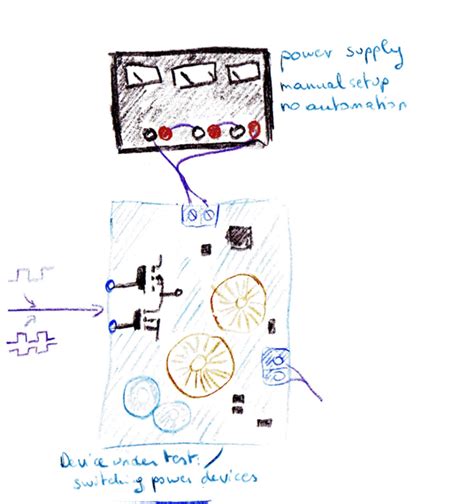 power supply
manual setup
no automation
Device under test:
switching power devices